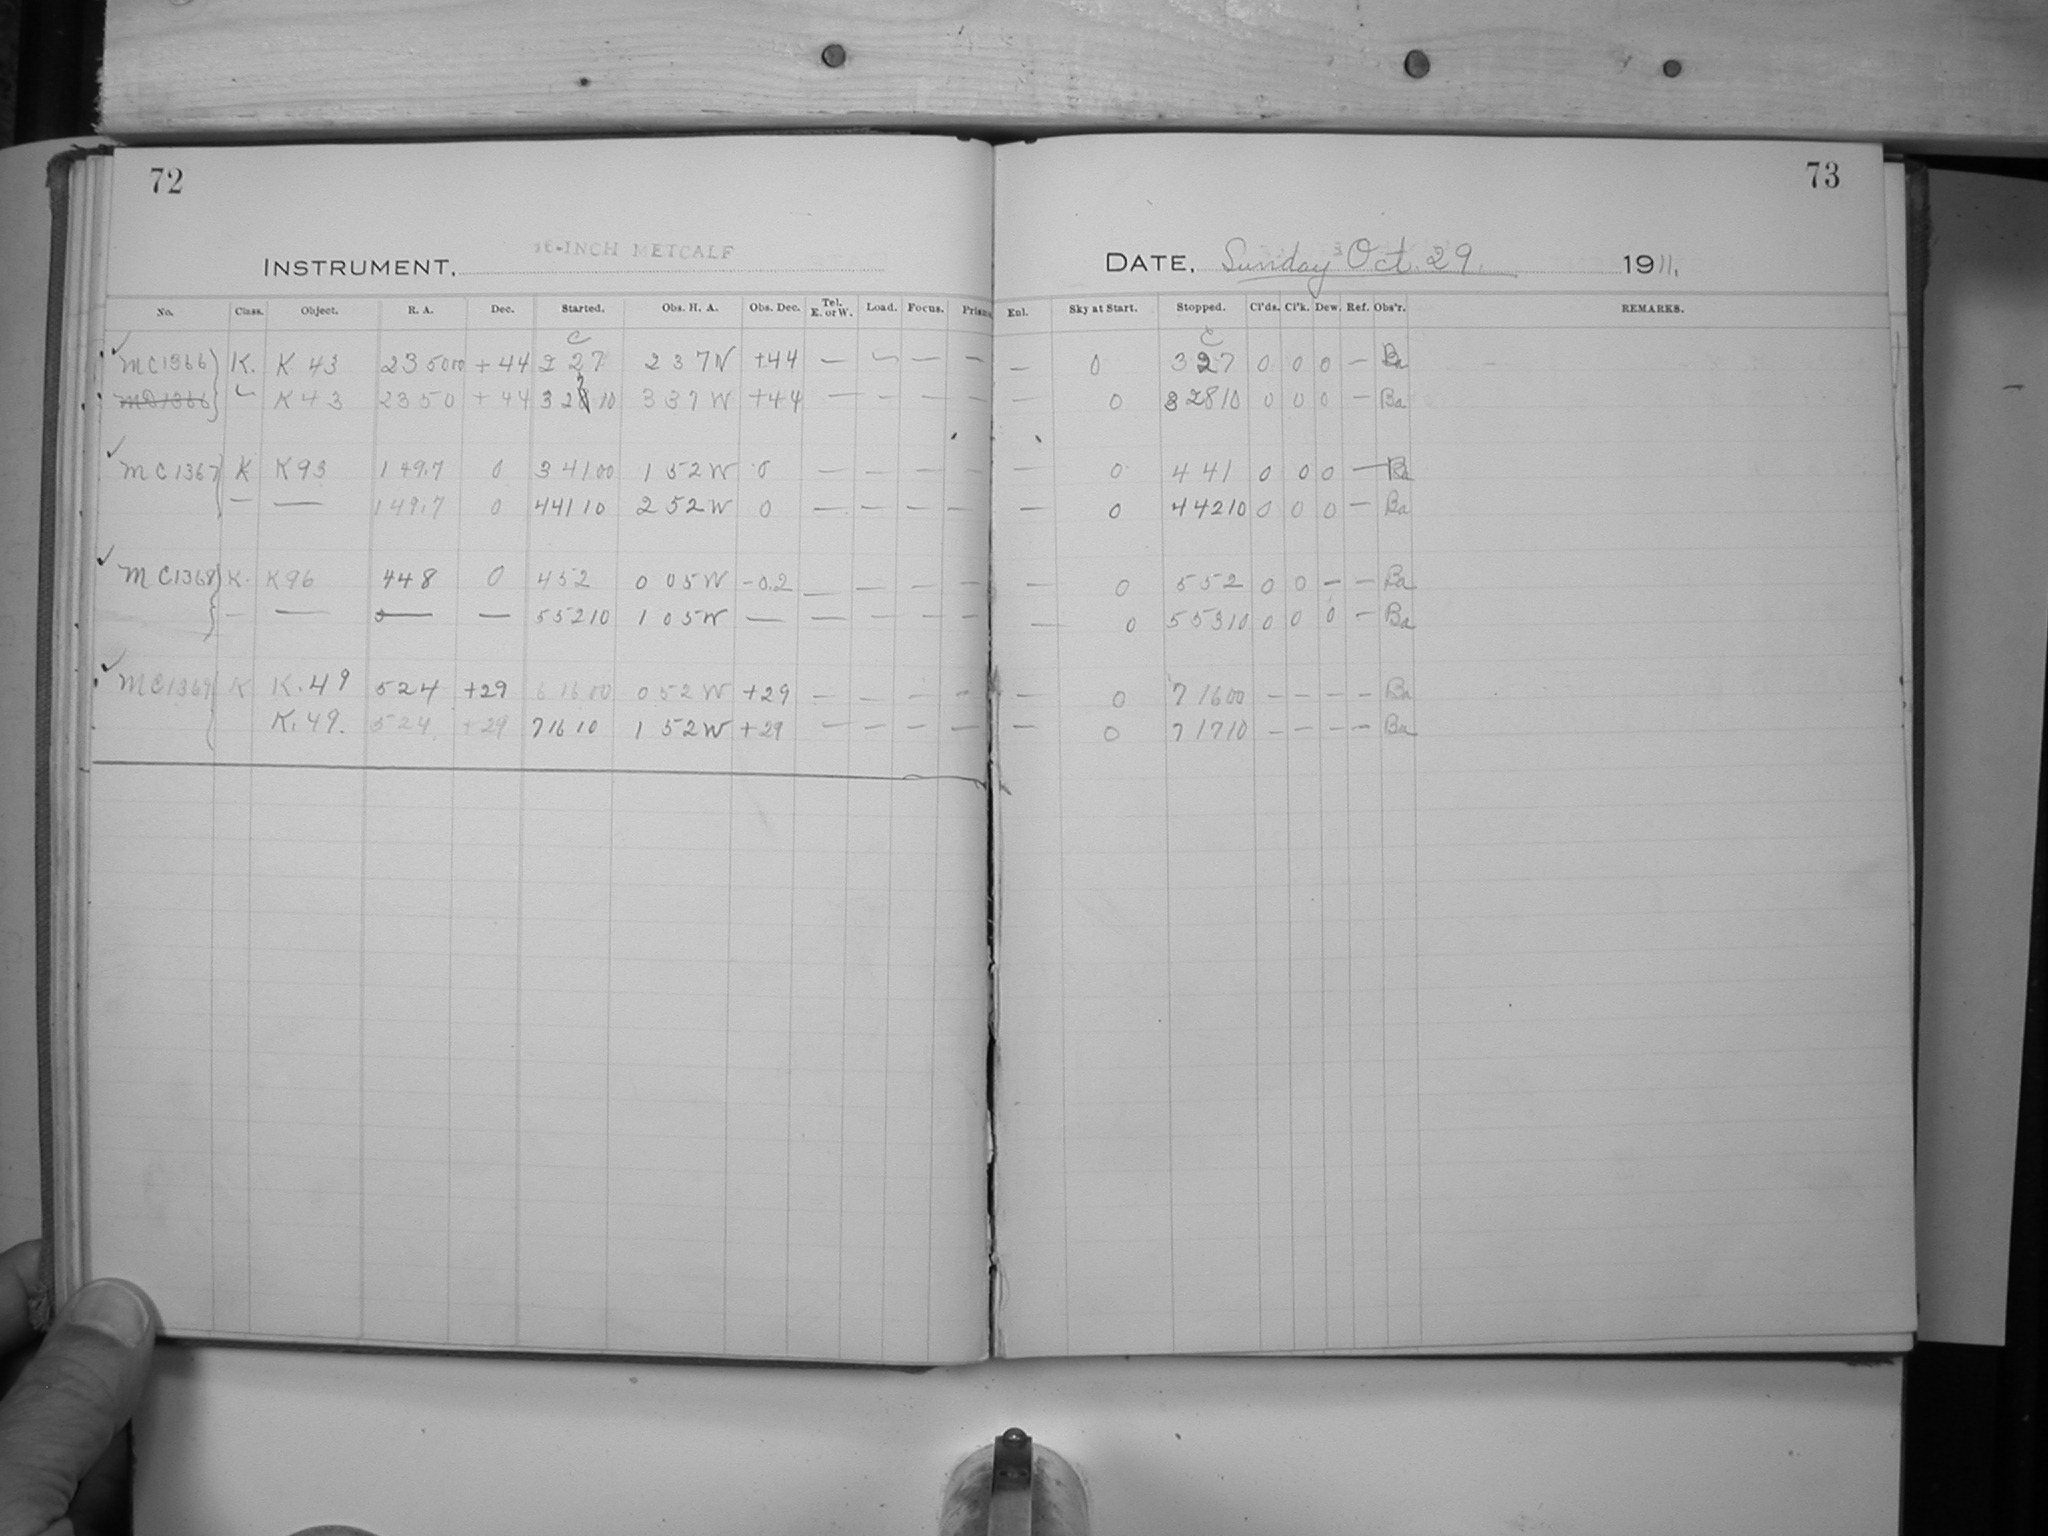 72
73
INSTRUMENT, 16-INCH METCALF
DATE, Sunday Oct. 29. 1911,
No. Class. Object. R. A. Dec. Started. Obs. H. A. Obs. Dec. Tel. E. or W. Load. Focus. Prism Enl. Sky at Start. Stopped. Cl'ds. Cl'k. Dew. Ref. Obs'r. REMARKS.
C C
✓ MC1366 K. K 43 235000 +44 2 27 2 37W +44 — — — — — 0 3 27 0 0 0 — Ba
K 43 2350 +44 3 2 10 3 37W +44 — — — — — 0 3 28 10 0 0 0 — Ba
✓ MC1367 K K93 1 49.7 0 3 41 00 1 52W 0 — — — — — 0 4 41 0 0 0 — Ba
— — 1 49.7 0 4 41 10 2 52W 0 — — — — — 0 4 42 10 0 0 0 — Ba
✓ MC1368 K. K96 448 0 4 52 0 05W -0.2 — — — — — 0 5 52 0 0 — — Ba
— — — — 5 52 10 1 05W — — — — — — 0 5 53 10 0 0 0 — Ba
✓ MC1369 K K.49 524 +29 6 16 00 0 52W +29 — — — — — 0 7 16 00 — — — — Ba
K.49. 524 +29 7 16 10 1 52W +29 — — — — — 0 7 17 10 — — — — Ba